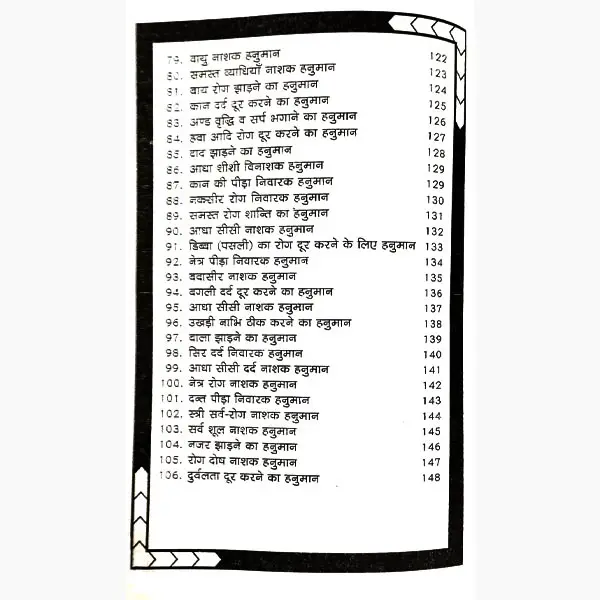 79. वायु नाशक हनुमान 122
80. समस्त व्याधियाँ नाशक हनुमान 123
81. बाय रोग झाड़ने का हनुमान 124
82. कान दर्द दूर करने का हनुमान 125
83. अण्ड वृद्धि व सर्प भगाने का हनुमान 126
84. हवा आदि रोग दूर करने का हनुमान 127
85. दाद झाड़ने का हनुमान 128
86. आधा शीशी विनाशक हनुमान 129
87. कान की पीड़ा निवारक हनुमान 129
88. नकसीर रोग निवारक हनुमान 130
89. समस्त रोग शान्ति का हनुमान 131
90. आधा सीसी नाशक हनुमान 132
91. डिब्बा (पसली) का रोग दूर करने के लिए हनुमान 133
92. नेत्र पीड़ा निवारक हनुमान 134
93. बवासीर नाशक हनुमान 135
94. बगली दर्द दूर करने का हनुमान 136
95. आधा सीसी नाशक हनुमान 137
96. उखड़ी नाभि ठीक करने का हनुमान 138
97. दाला झाड़ने का हनुमान 139
98. सिर दर्द निवारक हनुमान 140
99. आधा सीसी दर्द नाशक हनुमान 141
100. नेत्र रोग नाशक हनुमान 142
101. दन्त पीड़ा निवारक हनुमान 143
102. स्त्री सर्व-रोग नाशक हनुमान 144
103. सर्व शूल नाशक हनुमान 145
104. नजर झाड़ने का हनुमान 146
105. रोग दोष नाशक हनुमान 147
106. दुर्वलता दूर करने का हनुमान 148